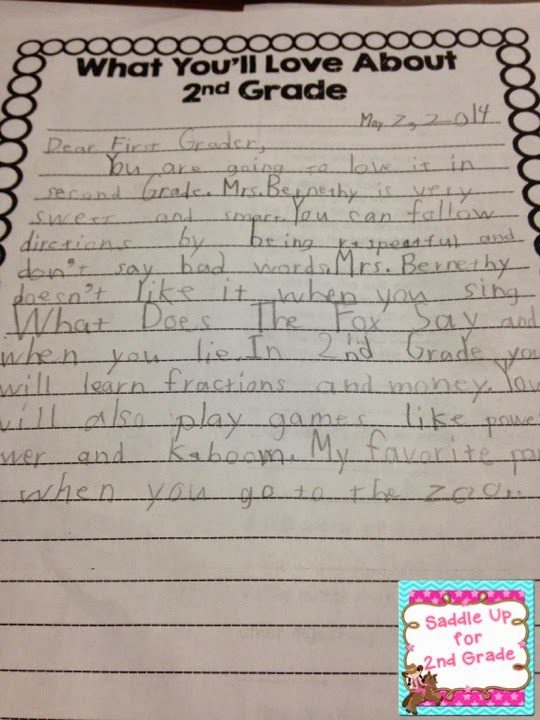 What You'll Love About
2nd Grade
May 7, 2014
Dear First Grader,
You are going to love it in
second Grade. Mrs. Bernethy is very
sweet and smart. You can follow
dirctions by being respectful and
don't say bad words. Mrs. Bernethy
doesn't like it when you sing
What Does The Fox Say and
when you lie. In 2nd Grade you
will learn fractions and money. You
will also play games like power
wer and kaboom. My favorite
when you go to the zoo.
Saddle Up
for
2nd Grade